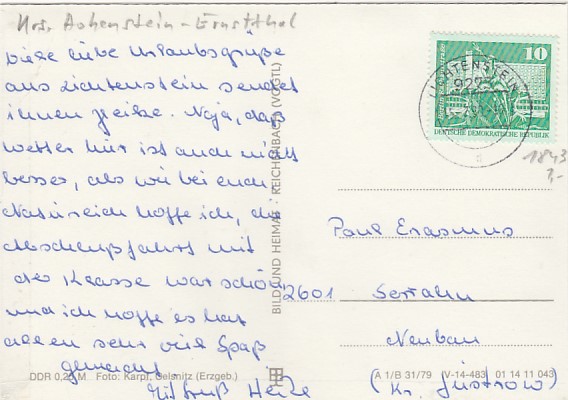 Krs. Hohenstein-Ernstthal
Viele liebe Urlaubsgrüße
aus Lichtenstein sendet
Ihnen Heike. Naja, daß
Wetter hier ist auch nicht
besser, als wie bei euch
Natürlich hoffe ich, die
Abschlußfahrt mit
der Klasse war schön
und ich hoffe es hat
allen sehr viel Spaß
gemacht.
Mit Gruß Heike
DDR 0,20 M Foto: Karpf, Oelsnitz (Erzgeb.)
BILD UND HEIMAT REICHENBACH (VOGTL)
10
DEUTSCHE DEMOKRATISCHE REPUBLIK
LICHTENSTEIN
1843
Paul Erasmus
2601 Serrahn
Neubau
(Kr. Güstrow)
A 1/B 31/79 (V-14-483) 01 14 11 043